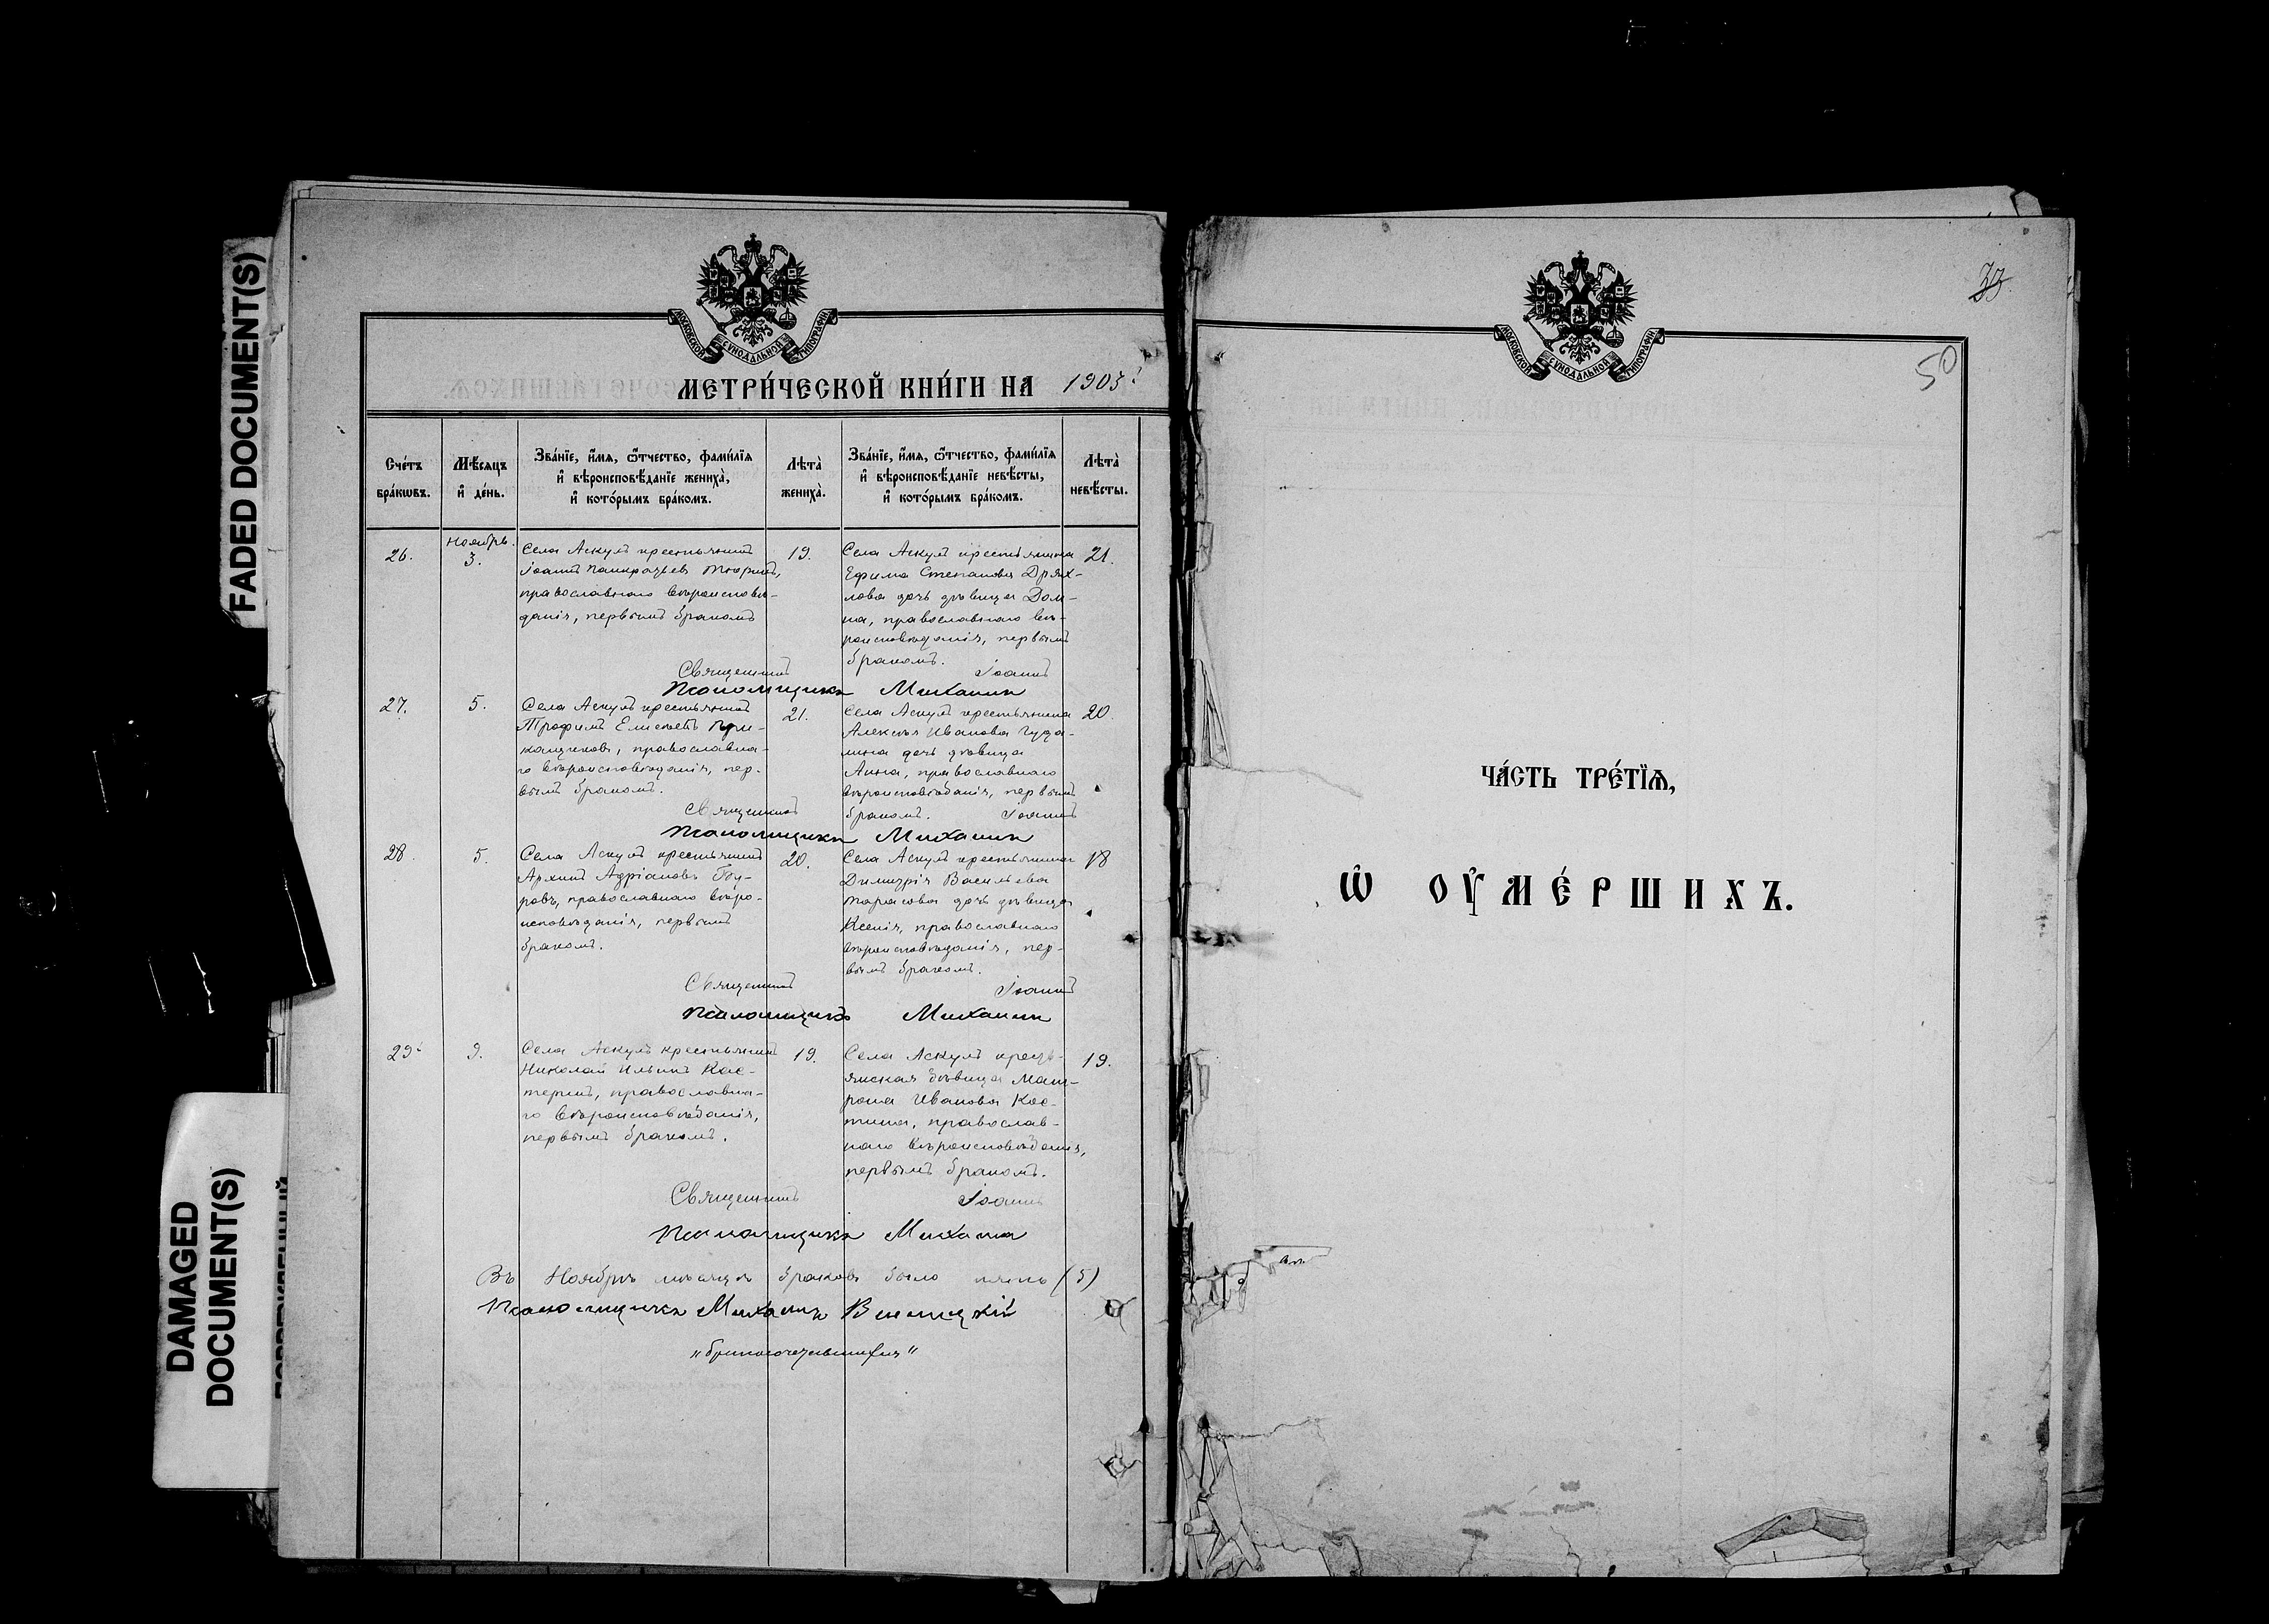 FADED DOCUMENT(S)
DAMAGED
DOCUMENT(S)
МОСКОВСКОЙ СѴНОДАЛЬНОЙ ТИПОГРАФІИ
МЕТРИ́ЧЕСКОЙ КНИ́ГИ НА 1903
Сче́тъ бра́кѡвъ.
Мѣ́сяцъ и҆ де́нь.
Зва́нїе, и҆́мя, ѻ҆́тчество, фами́лїя
и҆ вѣроисповѣ́данїе жениха̀,
и҆ кото́рымъ бра́комъ.
Лѣта̀ жениха̀.
Зва́нїе, и҆́мя, ѻ҆́тчество, фами́лїя
и҆ вѣроисповѣ́данїе невѣ́сты,
и҆ кото́рымъ бра́комъ.
Лѣта̀ невѣ́сты.
26.
Ноябрь.
3.
Села Аскулъ крестьянинъ
Іоаннъ Панкратьевъ Тюринъ,
православнаго вѣроисповѣ-
данія, первымъ бракомъ
19.
Села Аскулъ крестьянина
Ефима Степанова Дрях-
лова дочь дѣвица Дом-
на, православнаго вѣ-
роисповѣданія, первымъ
бракомъ.
21.
Священникъ Іоаннъ
Псаломщикъ Михаилъ
27.
5.
Села Аскулъ крестьянинъ
Трофимъ Елисѣевъ При-
кащиковъ, православна-
го вѣроисповѣданія, пер-
вымъ бракомъ.
21.
Села Аскулъ крестьянина
Алексѣя Иванова
дочь дѣвица
Анна, православнаго
вѣроисповѣданія, первымъ
бракомъ.
20.
Священникъ Іоаннъ
Псаломщикъ Михаилъ
28.
5.
Села Аскулъ крестьянинъ
Архипъ Адріановъ Гоу-
ровъ, православнаго вѣро-
исповѣданія, первымъ
бракомъ.
20.
Села Аскулъ крестьянина
Димитрія Васильева
Тарасова дочь дѣвица
Ксенія, православнаго
вѣроисповѣданія, пер-
вымъ бракомъ.
18
Священникъ Іоаннъ
Псаломщикъ Михаилъ
29.
9.
Села Аскулъ крестьянинъ
Николай Ильинъ Кас-
теринъ, православна-
го вѣроисповѣданія,
первымъ бракомъ.
19.
Села Аскулъ кресть-
янская дѣвица Мат-
рона Иванова Кос-
тина, православ-
наго вѣроисповѣданія,
первымъ бракомъ.
19.
Священникъ Іоаннъ
Псаломщикъ Михаилъ
Въ Ноябрѣ мѣсяцѣ браковъ было пять (5)
Псаломщикъ Михаилъ
"бракосочетавшихся"
33
50
МОСКОВСКОЙ СѴНОДАЛЬНОЙ ТИПОГРАФІИ
ЧА́СТЬ ТРЕ́ТЇѦ,
Ѡ҆ ОУ҆МЕ́РШИХЪ.